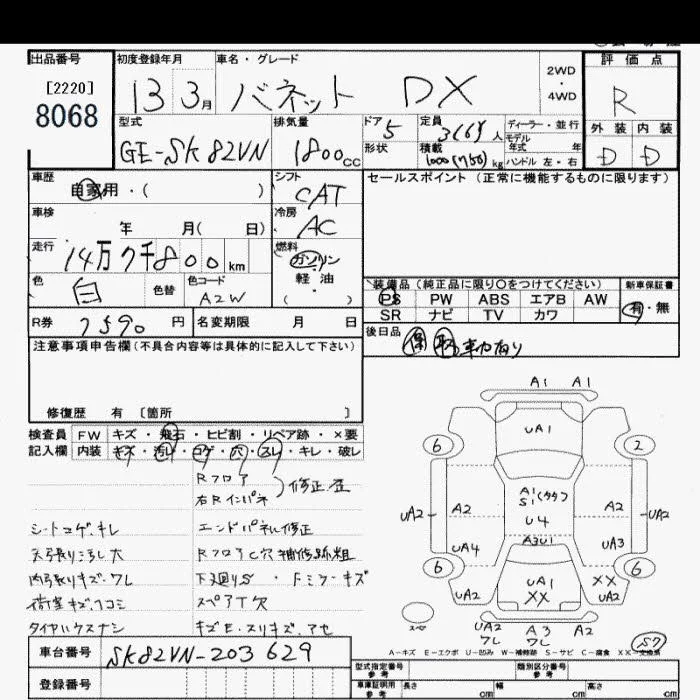 出品番号
[2220]
8068
初度登録年月
13 3月
車名・グレード
バネット DX
2WD
・
4WD
評価点
R
外装 内装
D D
型式
GE-SK82VN
排気量
1800cc
ドア
5
形状
定員
3(6)人
積載
1000(750)kg
ディーラー・並行
モデル
年式 年
ハンドル 左・右
車歴
自家用・( )
シフト
CAT
冷房
AC
車検
年 月( 日)
走行
14万7千800km
燃料
ガソリン
・
軽油
( )
色
白
色替
色コード
A2W
R券
7590円
名変期限 月 日
セールスポイント (正常に機能するものに限ります)
装備品 (純正品に限り○をつけてください)
PS PW ABS エアB AW
SR ナビ TV カワ
新車保証書
有・無
後日品
保 取 車カ有り
注意事項申告欄(不具合内容等は具体的に記入して下さい)
修復歴 有 [箇所 ]
検査員
記入欄
FW キズ・飛石・ヒビ割・リペア跡・×要
内装 キズ・汚レ・コゲ・穴・スレ・キレ・破レ
Rフロア
右Rインパネ
)修正歪
シートコゲ、キレ
エンドパネル修正
天張りヨゴレ大
Rフロア C穴 補修跡粗
内張りキズ・ワレ
下廻りS・Fミラーキズ
荷室キズ、凹コミ
スペアT欠
タイヤハウスナシ
キズE・スリキズ、アセ
車台番号
SK82VN-203629
登録番号
A1 A1
UA1
6 2
A1(タタク)
S1
U4
A2 A2
UA2 UA2
A3U1
UA4 UA3
6 6
UA1
XX
XX
UA2 UA2
スペア
UA2 A3 A2
ワレ ワレ
57
A-キズ E-エクボ U-凹み W-補修跡 S-サビ C-腐食 XX-交換済
型式指定番号
参考
類別区分番号
参考
車庫証明用
参考
長さ cm 幅 cm 高さ cm